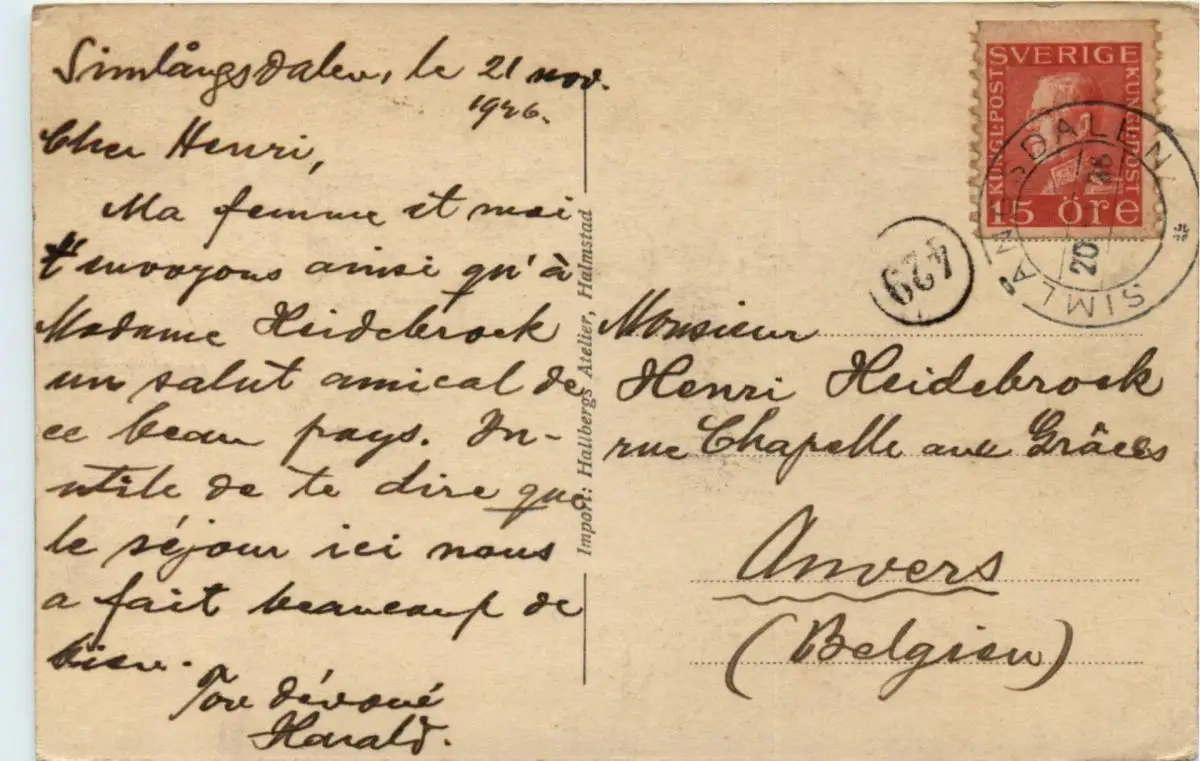 Simlångsdalen, le 21 nov.
1926.
Cher Henri,
Ma femme et moi
t'envoyons ainsi qu'à
Madame Heidebroek
un salut amical de
ce beau pays. In-
utile de te dire que
le séjour ici nous
a fait beaucoup de
bien.
Ton dévoué
Harald.
Import: Hallbergs Atelier, Halmstad
SVERIGE
KUNGL. POST
KUNGL. POST
15 ÖRE
SIMLÅNGSDALEN
20
429
Monsieur
Henri Heidebroek
rue Chapelle aux Grâces
Anvers
(Belgien)